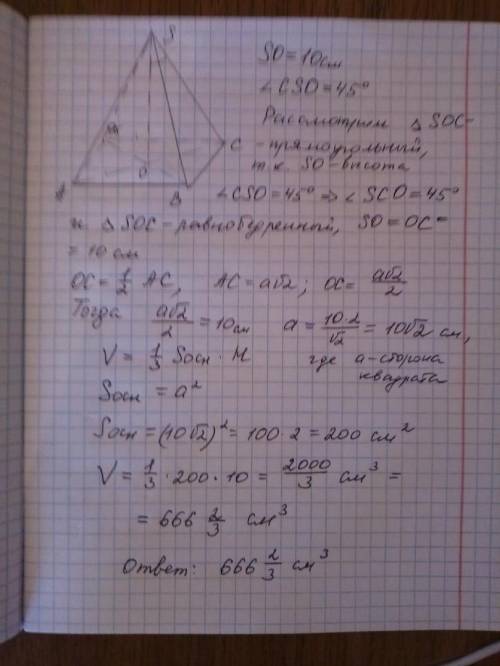 S
M
C
O
A
B
SO = 10 см
∠CSO = 45°
Рассмотрим △SOC –
– прямоугольный,
т.к. SO – высота
∠CSO = 45° ⇒ ∠SCO = 45°
и △SOC – равнобедренный, SO = OC =
= 10 см
OC = 1/2 AC, AC = a√2; OC = a√2/2
Тогда a√2/2 = 10 см a = 10·2/√2 = 10√2 см,
V = 1/3 Sосн · H где a – сторона
квадрата
Sосн = a²
Sосн = (10√2)² = 100·2 = 200 см²
V = 1/3 · 200 · 10 = 2000/3 см³ =
= 666 2/3 см³
Ответ: 666 2/3 см³